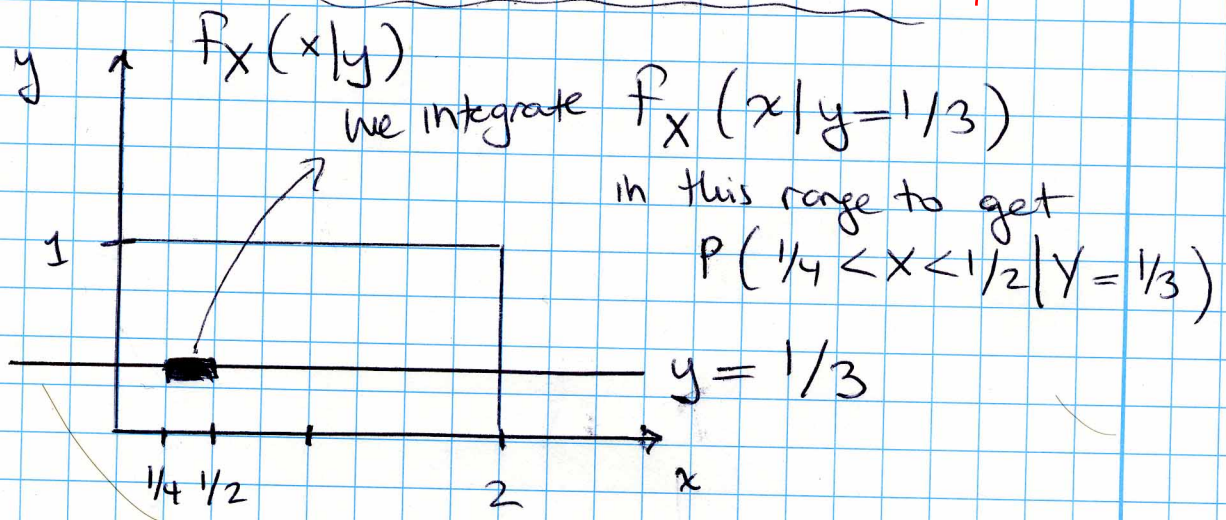 y
fX(x|y)
we integrate fX(x|y=1/3)
in this range to get
P(1/4<X<1/2|Y=1/3)
1
y=1/3
1/4 1/2
2
x